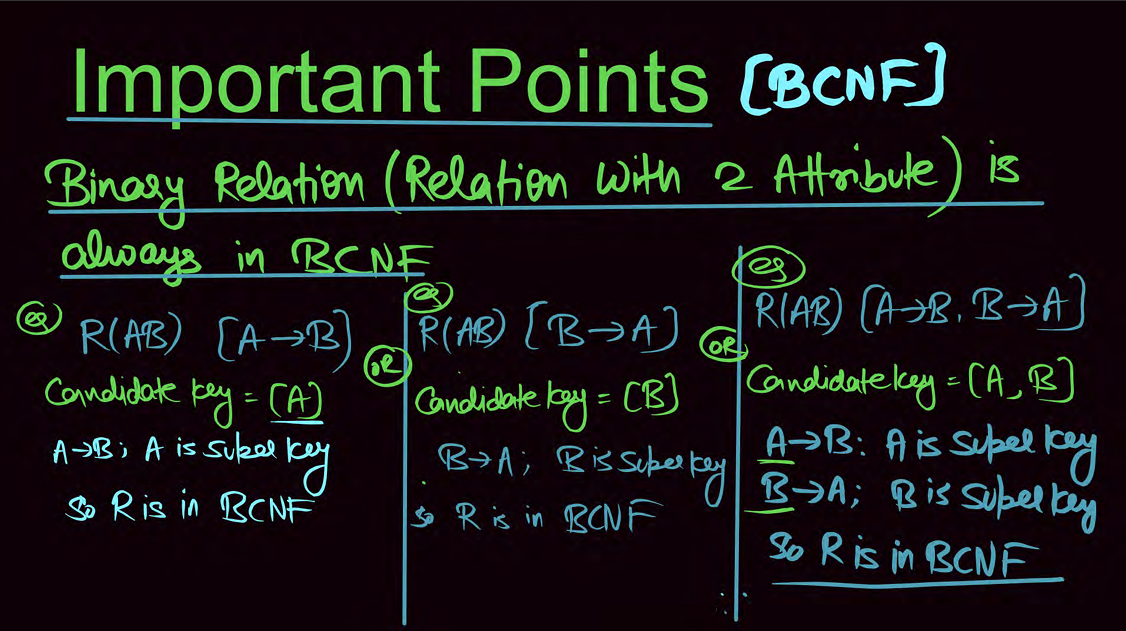 Important Points [BCNF]
Binary Relation (Relation with 2 Attribute) is
always in BCNF
eg
R(AB) [A→B]
Candidate key = [A]
A→B; A is super key
So R is in BCNF
OR
eg
R(AB) [B→A]
Candidate key = [B]
B→A; B is super key
So R is in BCNF
OR
eg
R(AB) [A→B, B→A]
Candidate key = [A, B]
A→B: A is super key
B→A; B is super key
So R is in BCNF